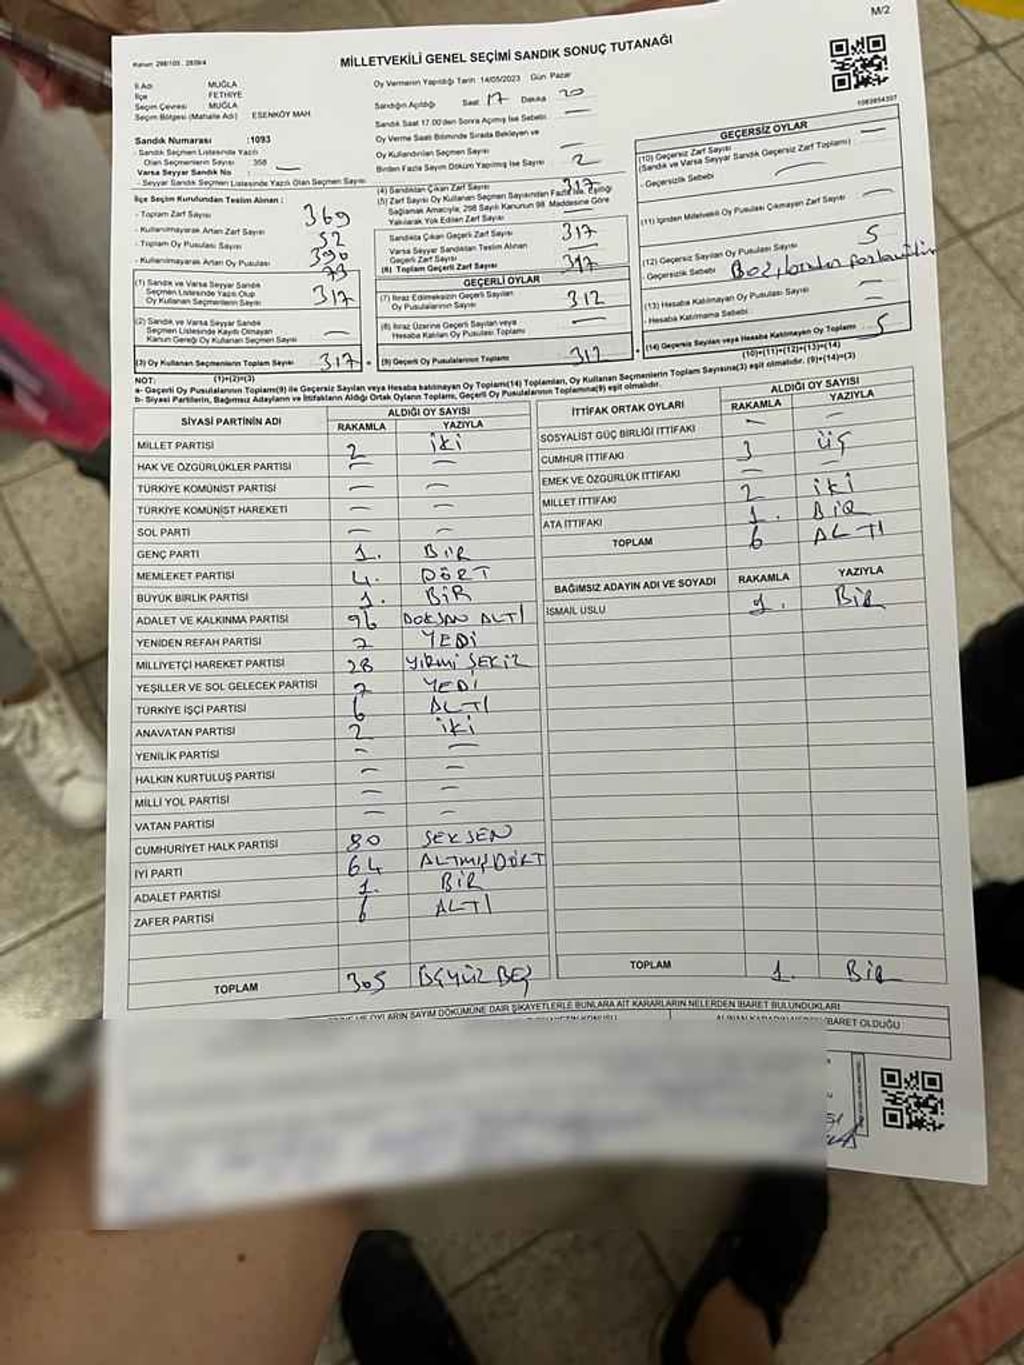 M/2
Kanun: 298/105 , 2839/4
MİLLETVEKİLİ GENEL SEÇİMİ SANDIK SONUÇ TUTANAĞI
1083854397
İl Adı MUĞLA
İlçe FETHİYE
Seçim Çevresi MUĞLA
Seçim Bölgesi (Mahalle Adı) ESENKÖY MAH
Sandık Numarası :1093
- Sandık Seçmen Listesinde Yazılı
Olan Seçmenlerin Sayısı : 358
Varsa Seyyar Sandık No : —
- Seyyar Sandık Seçmen Listesinde Yazılı Olan Seçmen Sayısı
İlçe Seçim Kurulundan Teslim Alınan :
- Toplam Zarf Sayısı 369
- Kullanılmayarak Artan Zarf Sayısı 52
- Toplam Oy Pusulası Sayısı 390
- Kullanılmayarak Artan Oy Pusulası 73
(1) Sandık ve Varsa Seyyar Sandık
Seçmen Listesinde Yazılı Olup
Oy Kullanan Seçmenlerin Sayısı 317
(2) Sandık ve Varsa Seyyar Sandık
Seçmen Listesinde Kaydı Olmayan
Kanun Gereği Oy Kullanan Seçmen Sayısı —
(3) Oy Kullanan Seçmenlerin Toplam Sayısı 317
(1)+(2)=(3)
Oy Vermenin Yapıldığı Tarih :14/05/2023 Gün: Pazar
Sandığın Açıldığı Saat 17 Dakika 20
Sandık Saat 17.00'den Sonra Açılmış İse Sebebi —
Oy Verme Saati Bitiminde Sırada Bekleyen ve
Oy Kullandırılan Seçmen Sayısı —
Birden Fazla Sayım Döküm Yapılmış İse Sayısı 2
(4) Sandıktan Çıkan Zarf Sayısı 317
(5) Zarf Sayısı Oy Kullanan Seçmen Sayısından Fazla İse, Eşitliği
Sağlamak Amacıyla, 298 Sayılı Kanunun 98. Maddesine Göre
Yakılarak Yok Edilen Zarf Sayısı —
Sandıkta Çıkan Geçerli Zarf Sayısı 317
Varsa Seyyar Sandıktan Teslim Alınan
Geçerli Zarf Sayısı —
(6) Toplam Geçerli Zarf Sayısı 317
GEÇERLİ OYLAR
(7) İtiraz Edilmeksizin Geçerli Sayılan
Oy Pusulalarının Sayısı 312
(8) İtiraz Üzerine Geçerli Sayılan veya
Hesaba Katılan Oy Pusulası Toplamı —
(9) Geçerli Oy Pusulalarının Toplamı 312
GEÇERSİZ OYLAR
(10) Geçersiz Zarf Sayısı —
(Sandık ve Varsa Seyyar Sandık Geçersiz Zarf Toplamı)
- Geçersizlik Sebebi —
(11) İçinden Milletvekili Oy Pusulası Çıkmayan Zarf Sayısı —
(12) Geçersiz Sayılan Oy Pusulası Sayısı 5
- Geçersizlik Sebebi
(13) Hesaba Katılmayan Oy Pusulası Sayısı —
- Hesaba Katılmama Sebebi —
(14) Geçersiz Sayılan veya Hesaba Katılmayan Oy Toplamı 5
(10)+(11)+(12)+(13)=(14)
NOT:
a- Geçerli Oy Pusulalarının Toplamı(9) ile Geçersiz Sayılan veya Hesaba katılmayan Oy Toplamı(14) Toplamları, Oy Kullanan Seçmenlerin Toplam Sayısına(3) eşit olmalıdır. (9)+(14)=(3)
b- Siyasi Partilerin, Bağımsız Adayların ve İttifakların Aldığı Ortak Oyların Toplamı, Geçerli Oy Pusulalarının Toplamına(9) eşit olmalıdır.
SİYASİ PARTİNİN ADI ALDIĞI OY SAYISI
RAKAMLA YAZIYLA
MİLLET PARTİSİ 2 İKİ
HAK VE ÖZGÜRLÜKLER PARTİSİ — —
TÜRKİYE KOMÜNİST PARTİSİ — —
TÜRKİYE KOMÜNİST HAREKETİ — —
SOL PARTİ — —
GENÇ PARTİ 1. BİR
MEMLEKET PARTİSİ 4. DÖRT
BÜYÜK BİRLİK PARTİSİ 1. BİR
ADALET VE KALKINMA PARTİSİ 96 DOKSAN ALTI
YENİDEN REFAH PARTİSİ 7 YEDİ
MİLLİYETÇİ HAREKET PARTİSİ 28 YİRMİ SEKİZ
YEŞİLLER VE SOL GELECEK PARTİSİ 7 YEDİ
TÜRKİYE İŞÇİ PARTİSİ 6 ALTI
ANAVATAN PARTİSİ 2 İKİ
YENİLİK PARTİSİ — —
HALKIN KURTULUŞ PARTİSİ — —
MİLLİ YOL PARTİSİ — —
VATAN PARTİSİ — —
CUMHURİYET HALK PARTİSİ 80 SEKSEN
İYİ PARTİ 64 ALTMIŞDÖRT
ADALET PARTİSİ 1. BİR
ZAFER PARTİSİ 6 ALTI
TOPLAM 305 ÜÇYÜZ BEŞ
İTTİFAK ORTAK OYLARI ALDIĞI OY SAYISI
RAKAMLA YAZIYLA
SOSYALİST GÜÇ BİRLİĞİ İTTİFAKI — —
CUMHUR İTTİFAKI 3 ÜÇ
EMEK VE ÖZGÜRLÜK İTTİFAKI — —
MİLLET İTTİFAKI 2 İKİ
ATA İTTİFAKI 1. BİR
TOPLAM 6 ALTI
BAĞIMSIZ ADAYIN ADI VE SOYADI RAKAMLA YAZIYLA
İSMAİL USLU 1. BİR
TOPLAM 1. BİR
VE OYLARIN SAYIM DÖKÜMÜNE DAİR ŞİKAYETLERLE BUNLARA AİT KARARLARIN NELERDEN İBARET BULUNDUKLARI
İBARET OLDUĞU